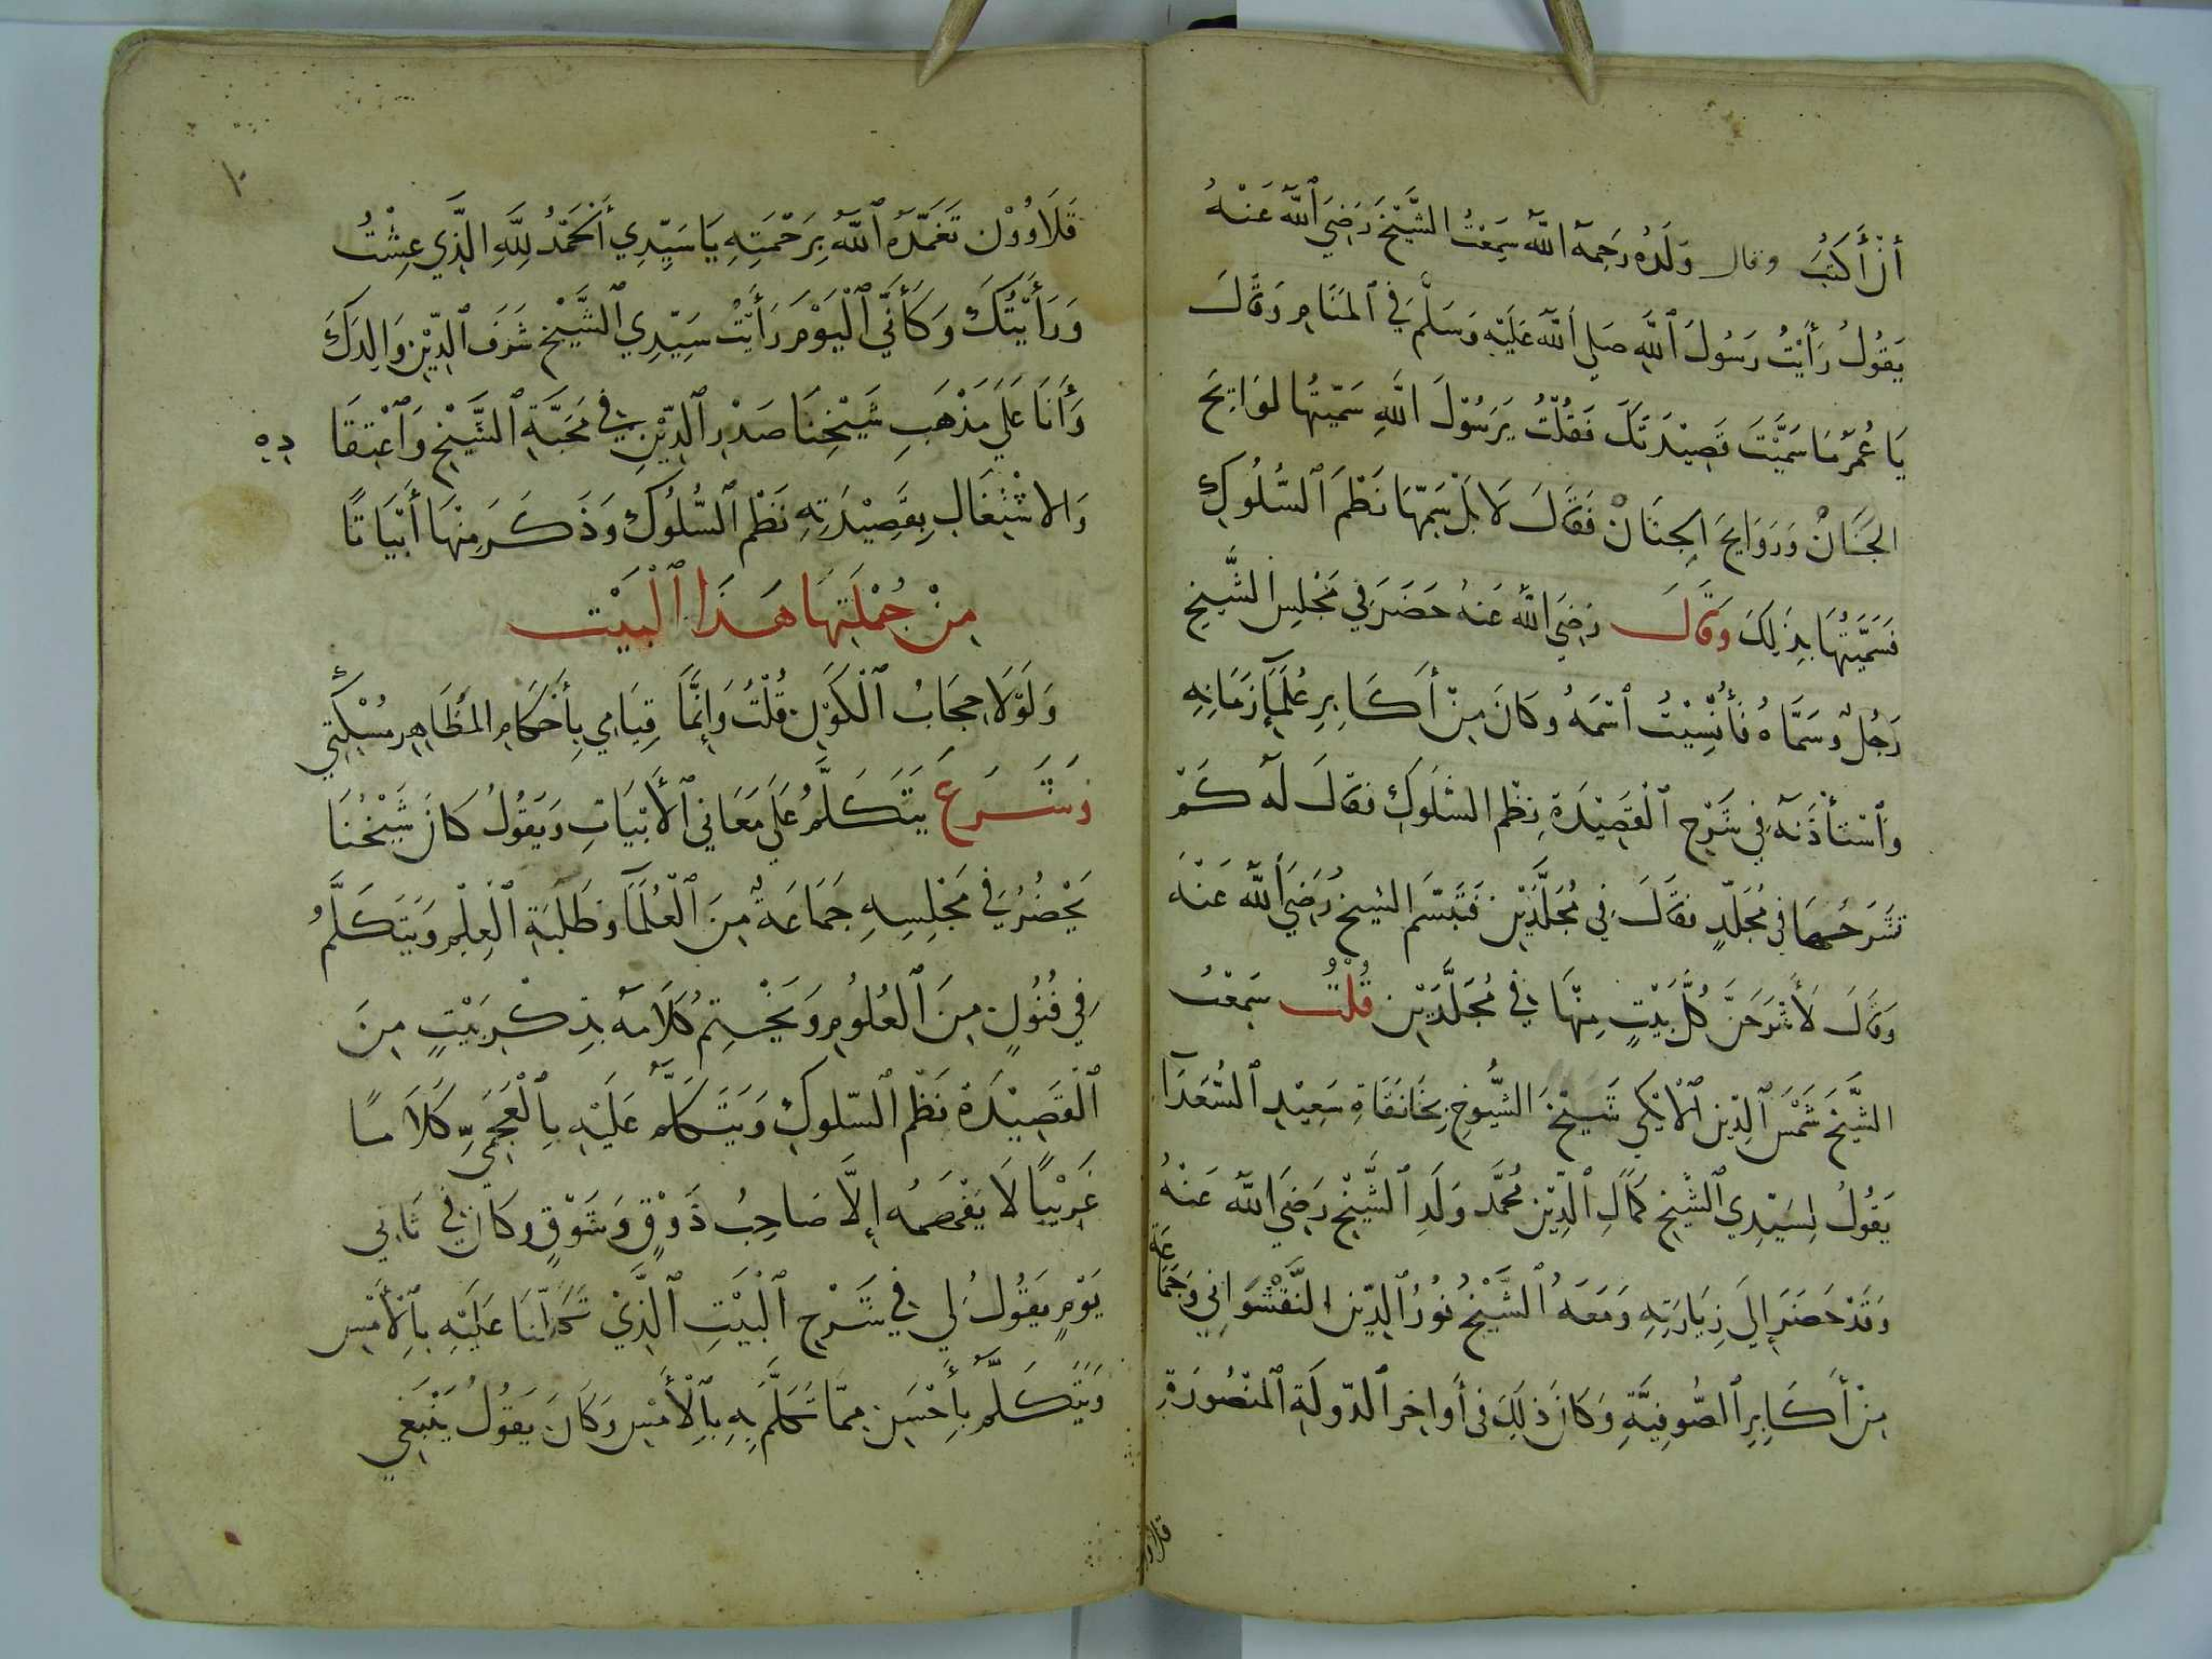 أَنْ أَكْتُبَ وقال وَلَدُهُ رَحِمَهُ اللَّهُ سَمِعْتُ الشَّيْخَ رَضِيَ اللَّهُ عَنْهُ
يَقُولُ رَأَيْتُ رَسُولَ اللَّهِ صَلى اللَّهُ عَلَيْهِ وَسَلَّمَ فِي الْمَنَامِ وَقَالَ
يَا عُمَرُ مَا سَمَّيْتَ قَصِيْدَتَكَ فَقُلْتُ يَرَسُوْلَ اللَّهِ سَمَّيْتُهَا لوَايِحَ
الجَنَانْ وَرَوَايِحَ الجِنَانْ فَقَالَ لَا بَلْ سَمِّهَا نَظْمَ السُّلُوكِ
فَسَمَّيْتُهَا بِذَلِكَ وَقَالَ رَضِيَ اللَّهُ عَنهُ حَضَرَ فِي مَجْلِسِ الشَّيخِ
رَجُلٌ وَسَمَّاهُ فَأُنْسِيْتُ اسْمَهُ وكَانَ مِنْ أَكَابِرِ عُلَمَآءِ زَمَانِهِ
وَاسْتَأْذَنَهُ فِي شَرْحِ الْقَصِيْدَةِ نظْمِ السُّلُوكِ فقالَ لَهُ كَمْ
تَشْرَحُهَا فِي مُجَلّدٍ فقَالَ فِي مُجَلَّدَيْنِ فَتَبَسَّمَ الشيخُ رَضِيَ اللَّهُ عَنْهُ
وَقَالَ لَأَشْرَحَنَّ كُلَّ بَيْتٍ مِنْهَا فِي مُجَلَّدَيْنِ قُلْتُ سَمِعْتُ
الشَّيْخَ شَمْسَ الدِّينِ الْأَيْكِي شَيْخَ الشُّيُوخِ بِخَانَقَاةِ سَعِيْدِ السُّعَدَآ
يَقُولُ لِسَيّدِي الشَّيْخِ كَمَالِ الدِّيْنِ مُحَمَّد وَلَدِ الشَّيْخِ رَضِيَ اللَّهُ عَنْهُ
وَقَدْ حَضَرَ إِلَى زِيَارَتِهِ وَمَعَهُ الشَّيْخُ نُوْرُ الدِّيْنِ النَّقْشَوَانِي وَجَمَاعَةٌ
مِنْ أَكَابِرِ الصُّوفِيَّةِ وَكَانَ ذَلِكَ فى أَوَاخِرِ الدّولَةِ الْمَنْصُورَةِ
قلاوو
١٠
قَلَاوُوْن تَغَمَّدَهُ اللَّهُ بِرَحْمَتِهِ يَا سَيِّدِي أَلْحَمْدُ لِلَّهِ الَّذِي عِشْتُ
وَرَأَيْتُكَ وَكَأَنّي الْيَوْمَ رَأَيْتُ سَيِّدِي الشَّيْخ شَرَف الدِّيْنِ وَالِدَكَ
وَأَنَا عَلَى مَذْهَبِ شَيْخِنَا صَدْرِ الدِّيْنِ فِي مَحَبَّةِ الشَّيْخِ وَاعْتِقَادِهِ
وَالاشْتِغَالِ بِقَصِيْدَتِهِ نَظْمِ السُّلُوكِ وَذَكَرَ مِنْهَا أَبْيَاتًا
مِنْ جُمْلَتِهَا هَذَا الْبَيْت
وَلَوْلَا حِجَابُ الْكَوْنِ قُلْتُ وَإِنَّمَا قِيَامِي بِأَحْكَامِ المَظَاهِرِ مُسْكِتِي
وَشَرَعَ يَتَكَلَّمُ عَلَى مَعَانِي الْأَبْيَاتِ وَيَقُولُ كَانَ شَيْخُنَا
يَحْضُرُ فِي مَجْلِسِهِ جَمَاعَةٌ مِنَ الْعُلَمَا وَطَلَبَةِ الْعِلْمِ وَيَتَكَلَّمُ
فِي فُنُونٍ مِنَ الْعُلُومِ وَيَخْتِمُ كَلَامَهُ بِذِكْرِ بَيْتٍ مِنَ
الْقَصِيْدَةِ نَظْمِ السّلوكِ وَيَتَكَلَّمُ عَلَيْهِ بِالْعَجَمِيِّ كَلَامًا
غَرِيْبًا لَا يَفْهَمُهُ إِلَّا صَاحِبُ ذَوْقٍ وَشَوْقٍ وكَانَ فِي ثَانِي
يَوْمٍ يَقُولُ لِي فِي شَرْحِ الْبَيْتِ الَّذِيْ تَكَلَّمْنَا عَلَيْهِ بِالْأَمْسِ
وَيَتَكَلَّمُ بِأَحْسَنِ مِمَّا تَكَلَّمَ بِهِ بِالْأَمْسِ وَكَانَ يَقُولُ يَنْبَغِي